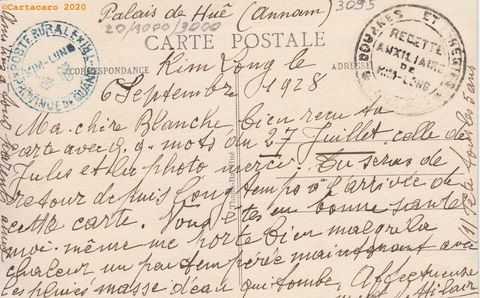 ©Cartacaro 2020
Palais de Huê (Annam)
3095
20/1000/3000
CARTE POSTALE
CORRESPONDANCE
ADRESSE
POSTE RURALE
KIM-LUNG
PROVINCE DE QUANG
DOUANES ET RÉGIES
RECETTE
AUXILIAIRE
DE
KIM-LUNG
Kim Long le
6 Septembre 1928
Ma chère Blanche, bien reçu ta
carte avec q.q. mots du 27 Juillet, celle de
Jules et la photo, merci. Tu seras de
retour depuis longtemps à l'arrivée de
cette carte. Vous êtes en bonne santé
moi-même me porte bien malgré la
chaleur un peu tempérée maintenant avec
les pluies masse d'eau qui tombe. Affectueuse
tous les 5 ans